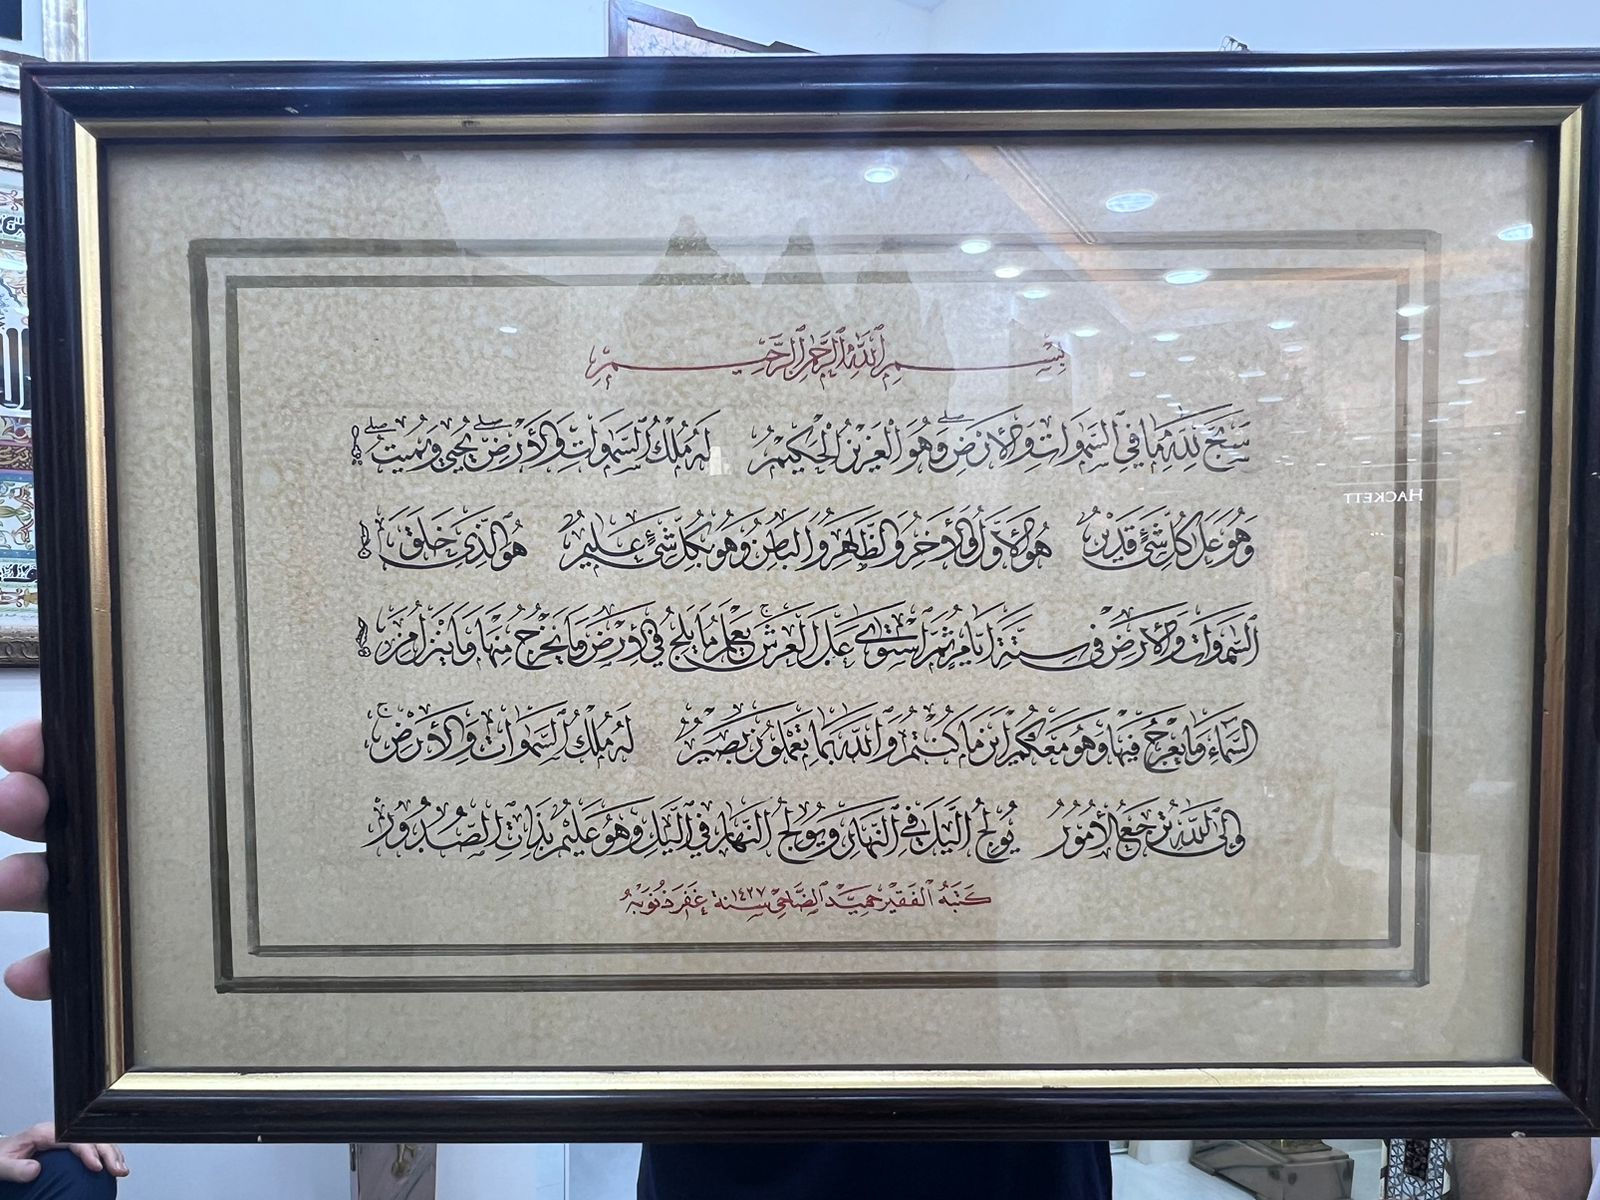 بِسْمِ اللَّهِ الرَّحْمَٰنِ الرَّحِيمِ
سَبَّحَ لِلَّهِ مَا فِي السَّمَوَاتِ وَالْأَرْضِ وَهُوَ الْعَزِيزُ الْحَكِيمُ لَهُ مُلْكُ السَّمَوَاتِ وَالْأَرْضِ يُحْيِي وَيُمِيتُ
وَهُوَ عَلَى كُلِّ شَيْءٍ قَدِيرٌ هُوَ الْأَوَّلُ وَالْآخِرُ وَالظَّاهِرُ وَالْبَاطِنُ وَهُوَ بِكُلِّ شَيْءٍ عَلِيمٌ هُوَ الَّذِي خَلَقَ
السَّمَوَاتِ وَالْأَرْضَ فِي سِتَّةِ أَيَّامٍ ثُمَّ اسْتَوَى عَلَى الْعَرْشِ يَعْلَمُ مَا يَلِجُ فِي الْأَرْضِ وَمَا يَخْرُجُ مِنْهَا وَمَا يَنْزِلُ مِنَ
السَّمَاءِ وَمَا يَعْرُجُ فِيهَا وَهُوَ مَعَكُمْ أَيْنَ مَا كُنْتُمْ وَاللَّهُ بِمَا تَعْمَلُونَ بَصِيرٌ لَهُ مُلْكُ السَّمَوَاتِ وَالْأَرْضِ
وَإِلَى اللَّهِ تُرْجَعُ الْأُمُورُ يُولِجُ اللَّيْلَ فِي النَّهَارِ وَيُولِجُ النَّهَارَ فِي اللَّيْلِ وَهُوَ عَلِيمٌ بِذَاتِ الصُّدُورِ
كَتَبَهُ الْفَقِيرُ حَمِيد الضَّاحِي سنة ١٤٢٧ غَفَرَ ذُنُوبَهُ
HACKETT